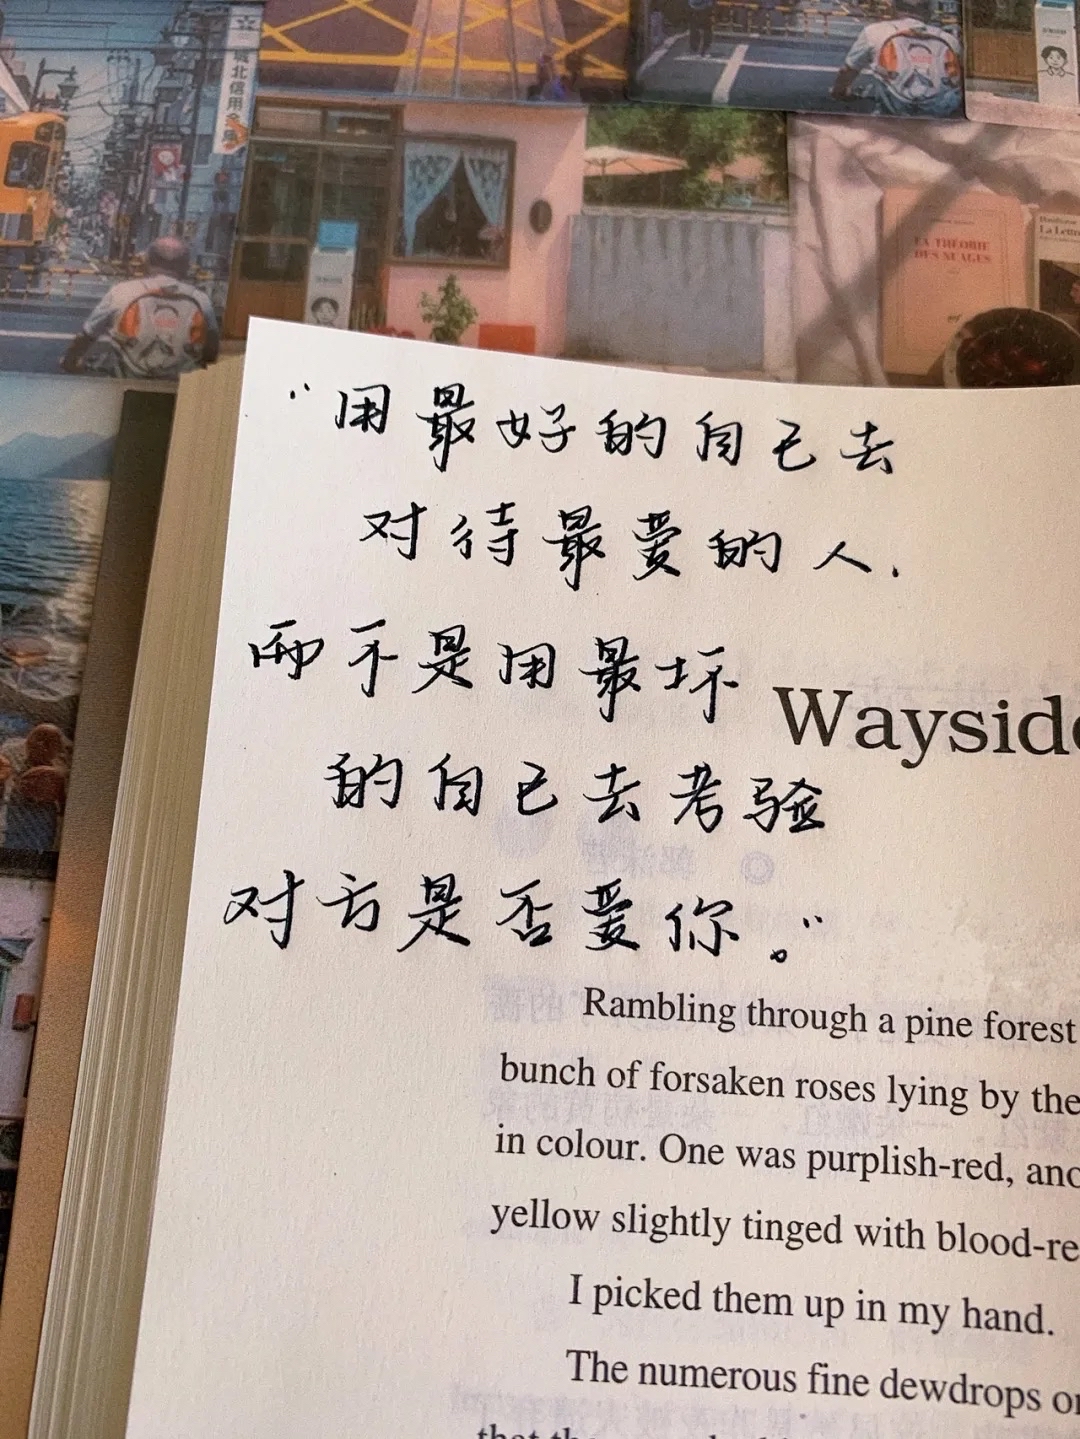 城北信用金庫
LA THÉORIE
DES NUAGES
La Lettre
“用最好的自己去
对待最爱的人.
而不是用最坏
的自己去考验
对方是否爱你。”
Wayside
Rambling through a pine forest
bunch of forsaken roses lying by the
in colour. One was purplish-red, and
yellow slightly tinged with blood-re
I picked them up in my hand.
The numerous fine dewdrops on